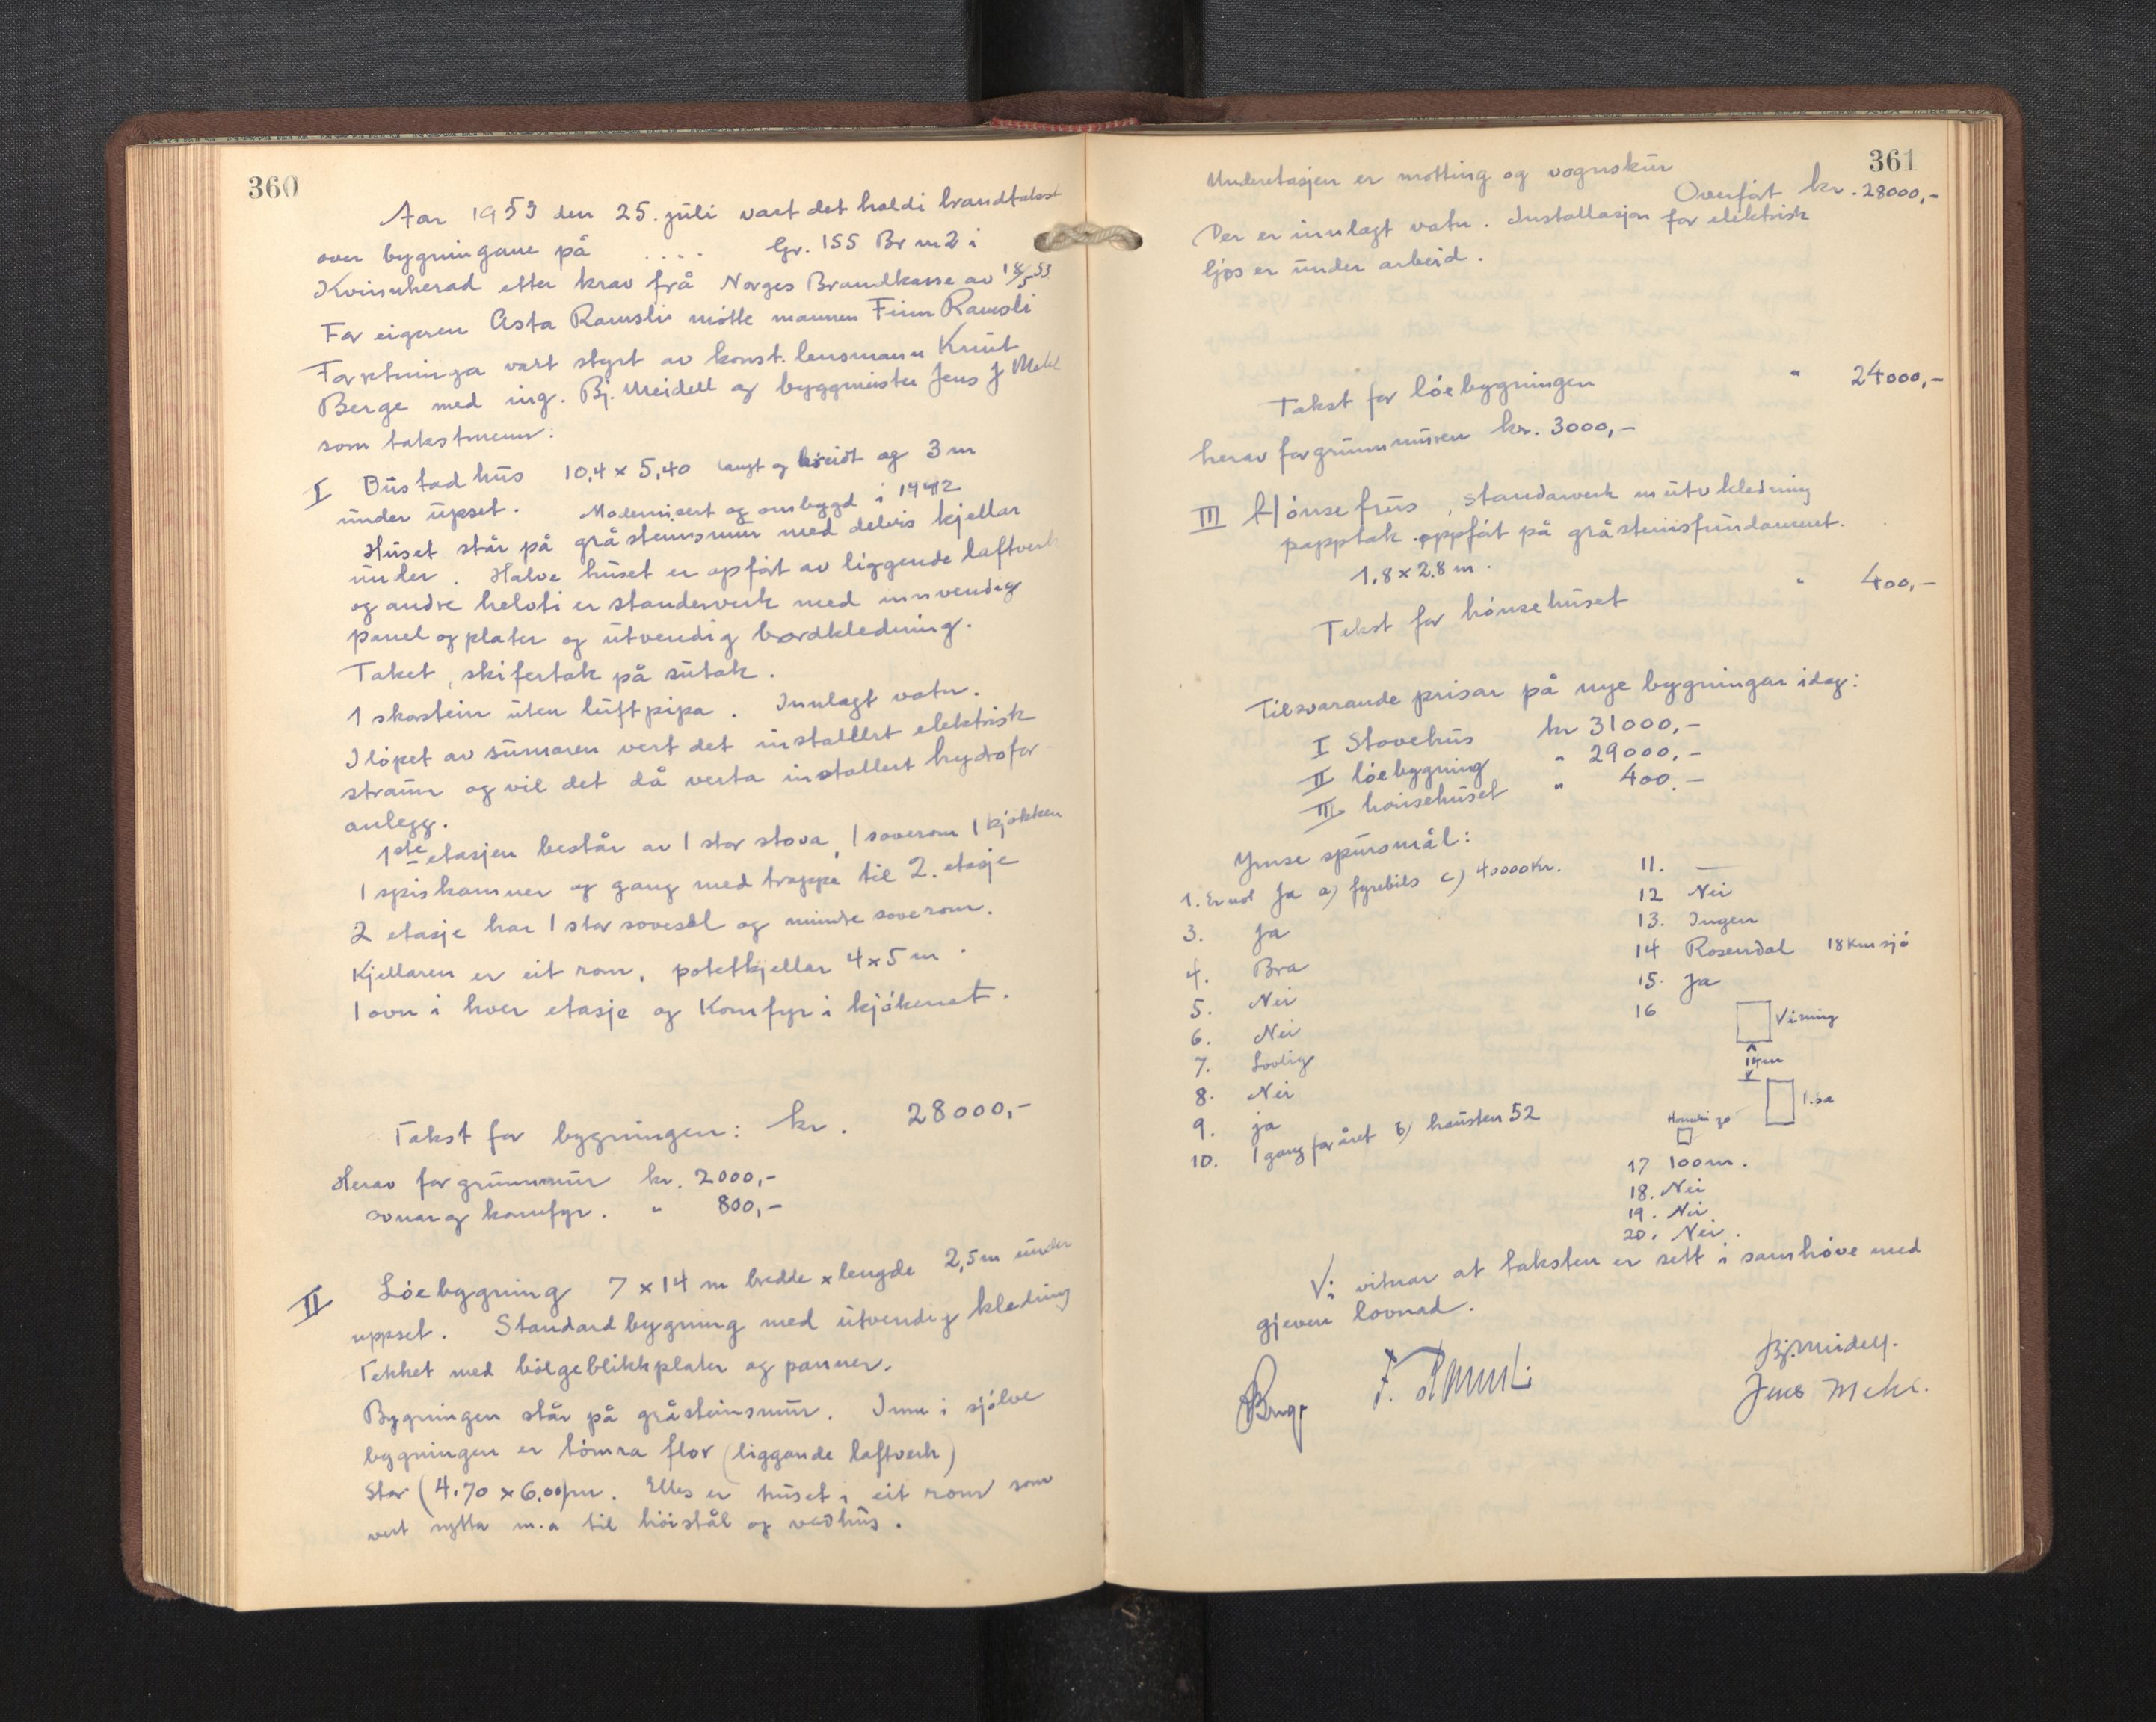 360
Aar 1953 den 25. juli vart det holdi brandtakst
over bygningane på .... Gr. 155 Br nr 2 i
Kvinnherad etter krav frå Norges Brandkasse av 18/5 53
For eigaren Asta Ramsli møtte mannen Finn Ramsli
Forretninga vart styrt av konst. lensmann Knut
Berge med ing. Bj. Meidell og byggmeister Jens J Mehl
som takstmenn:
I Bustadhus 10,4 x 5,40 langt og breidt og 3 m
under upset. Modernisert og ombygd i 1942
Huset står på gråsteinsmur med delvis kjellar
under. Halve huset er opført av liggende laftverk
og andre helvti er standerverk med innvendig
panel og plater og utvendig bordkledning.
Taket, skifertak på sutak.
1 skorstein uten luftpipa. Innlagt vatn.
I løpet av sumaren vert det installert elektrisk
straum og vil det då verta installert hydrofor-
anlegg.
1ste etasjen består av 1 stor stova, 1 soverom 1 kjøkken
1 spiskammer og gang med trappe til 2. etasje
2 etasje har 1 stor sovesal og mindre soverom.
Kjellaren er eit rom, potetkjellar 4x5 m.
1 ovn i hver etasje og Komfyr i kjøkenet.
Takst for bygningen: kr. 28000,-
Herav for grunnmur kr. 2000,-
ovnar og komfyr. " 800,-
II Løebygning 7 x 14 m bredde x lengde 2,5 m under
uppset. Standardbygning med utvendig kledning
Tekket med bølgeblikkplater og panner.
Bygningen står på gråsteinsmur. Inne i sjølve
bygningen er tømra flor (liggande laftverk)
Stor (4.70 x 6.00)m. Elles er huset i eit rom som
vert nytta m.a til høistål og vedhus.
361
Underetasjen er møtting og vognskur
Overført kr. 28000,-
Der er innlagt vatn. Installasjon for elektrisk
ljos er under arbeid.
Takst for løebygningen " 24000,-
herav for grunnmuren kr. 3000,-
III Hønsehus, standarverk m utv kledning
papptak oppført på gråsteinsfundament.
1.8 x 2.8 m.
Takst for hønsehuset " 400,-
Tilsvarande prisar på nye bygningar idag:
I Stovehus kr 31000,-
II løebygning " 29000,-
III hønsehuset " 400.-
Ymse spursmål:
1. Ja a) fyrebils c) 40000 Kr.
3. Ja
4. Bra
5. Nei
6. Nei
7. Lovlig
8. Nei
9. ja
10. 1 gang for året b) hausten 52
11. —
12 Nei
13. Ingen
14 Rosendal 18 Km sjø
15. Ja
16
Våning
14m
Løa
17 100 m.
18. Nei
19. Nei
20. Nei.
Vi vitnar at taksten er sett i samhøve med
gjeven lovnad.
KBerge F. Ramsli Bj. Meidell.
Jens Mehl.